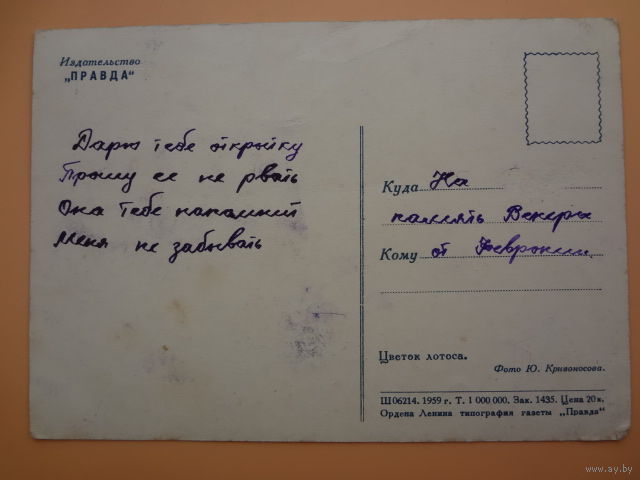 Издательство
„ПРАВДА“
Дарю тебе открыйку
Прошу ее не рвать
Она тебе напомнит
Меня не забывать
Куда На
память Венеры
Кому от Февронии
Цветок лотоса.
Фото Ю. Кривоносова.
Ш06214. 1959 г. Т. 1 000 000. Зак. 1435. Цена 20 к.
Ордена Ленина типография газеты „Правда“
www.ay.by